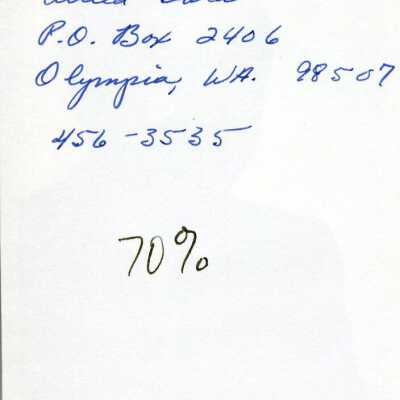 P.O. Box 2406
Olympia, WA. 98507
456-3535
70%